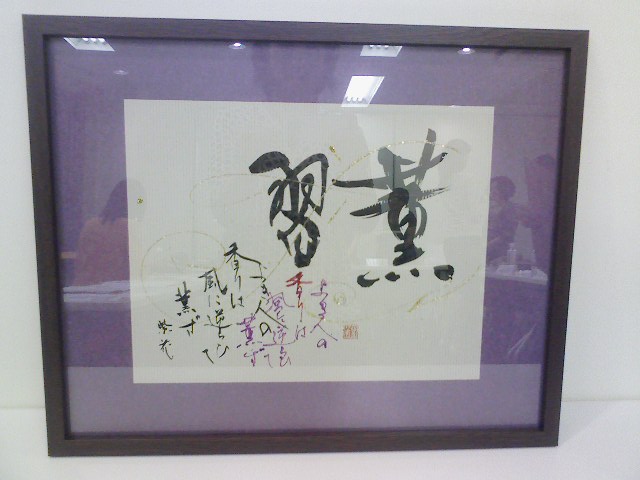 薫習
よき人の
香りは
風に逆らひて
薫ず
よき人の
香りは
風に逆らひて
薫ず